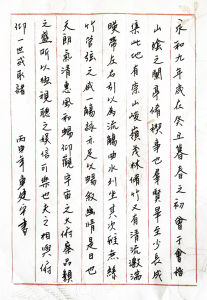 永和九年歲在癸丑暮春之初會于會稽
山陰之蘭亭脩稧事也羣賢畢至少長咸
集此地有崇山峻領茂林脩竹又有清流激湍
暎帶左右引以為流觴曲水列坐其次雖無絲
竹管弦之盛一觴一詠亦足以暢敘幽情是日也
天朗氣清惠風和暢仰觀宇宙之大俯察品類
之盛所以極視聽之娛信可樂也夫之相與俯
仰一世或取諸 丙申年 書